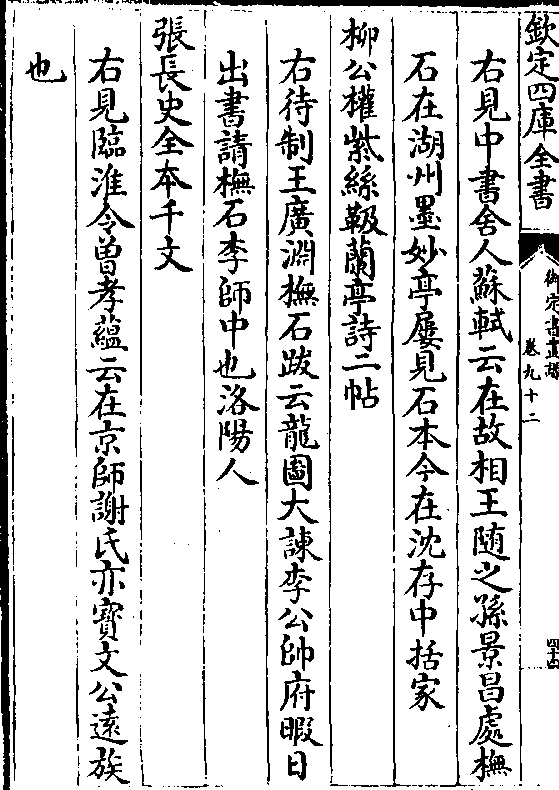 欽定四庫全書
御定書畫譜
卷九十二
四十四
右見中書舍人蘇軾云在故相王随之孫景昌處橅
石在湖州墨妙亭屢見石本今在沈存中括家
柳公權紫絲靸蘭亭詩二帖
右待制王廣淵橅石跋云龍圖大諫李公帥府暇日
出書請橅石李師中也洛陽人
張長史全本千文
右見臨淮令曾孝藴云在京師謝氏亦寳文公遠族
也